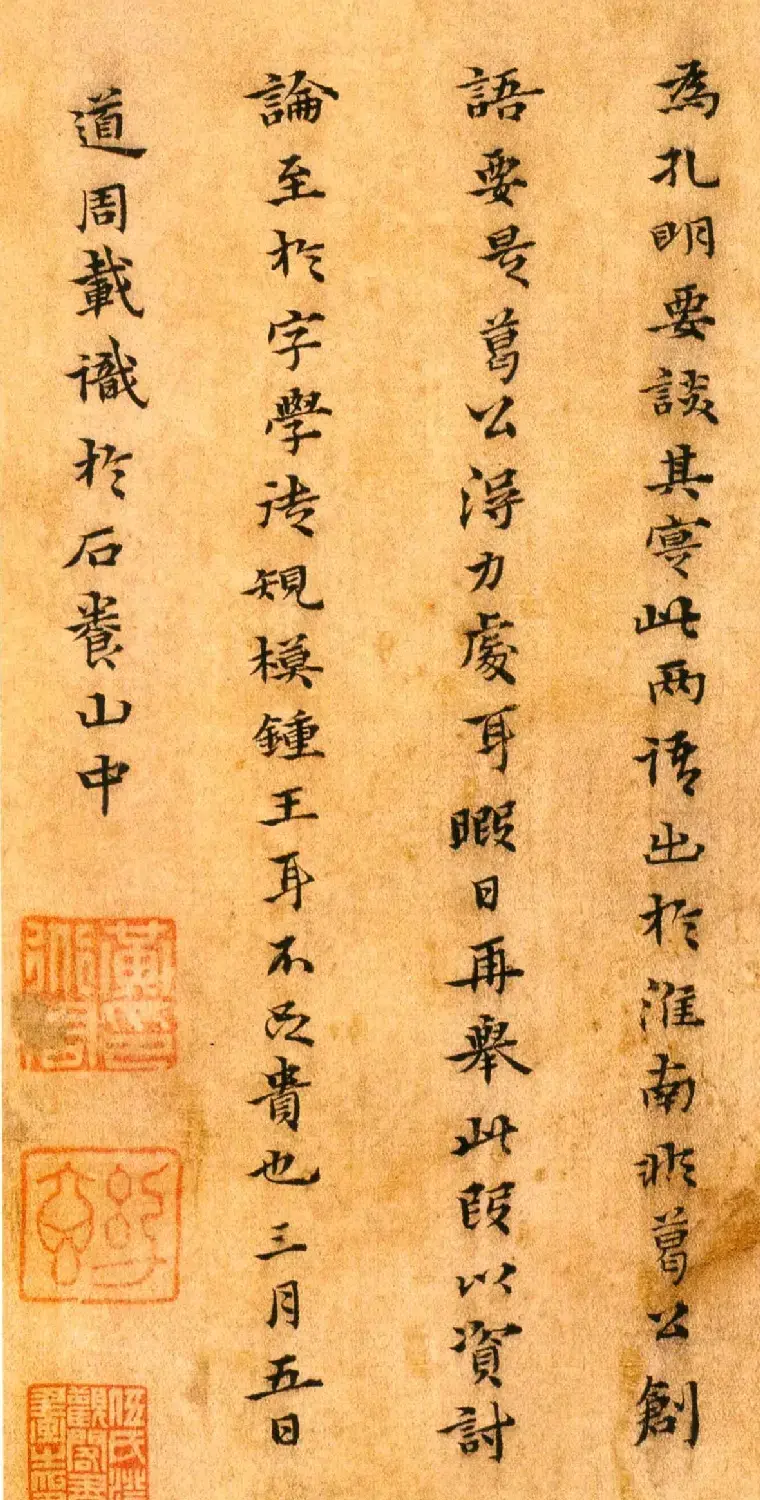 為孔明要談其寔此兩语出於淮南非葛公創
語要是葛公淂力處耳暇日再舉此段以資討
論至於字學法規模鍾王耳不足貴也三月五日
道周載識於石養山中